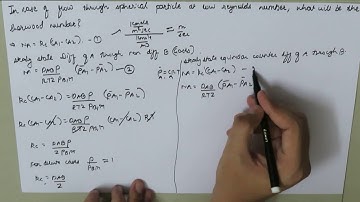 In case of flow through spherical particle at low reynolds number, what will be the
sherwood number?
→ NA = Kc (CA1 - CA2) — ①
kmole
m²sec
kmole
m³
= m
sec
Steady state Diff of A through non diff B
NA = DAB P
RTZ PB,M
(P̄A1 - P̄A2) — ②
Kc (CA1 - CA2) = DAB P
RTZ PB,M
(P̄A1 - P̄A2)
Kc (CA1 - CA2) = DAB P
RTZ PB,M
(CA1 - CA2) RT
Kc = DAB P
Z PB,M
For dilute
P
PB,M
= 1
Kc = DAB
Z
Steady state equimolar counter diff of A through B
NA = Kc (CA1 - CA2) —
NA = DAB
RTZ
(P̄A1 - P̄A2)